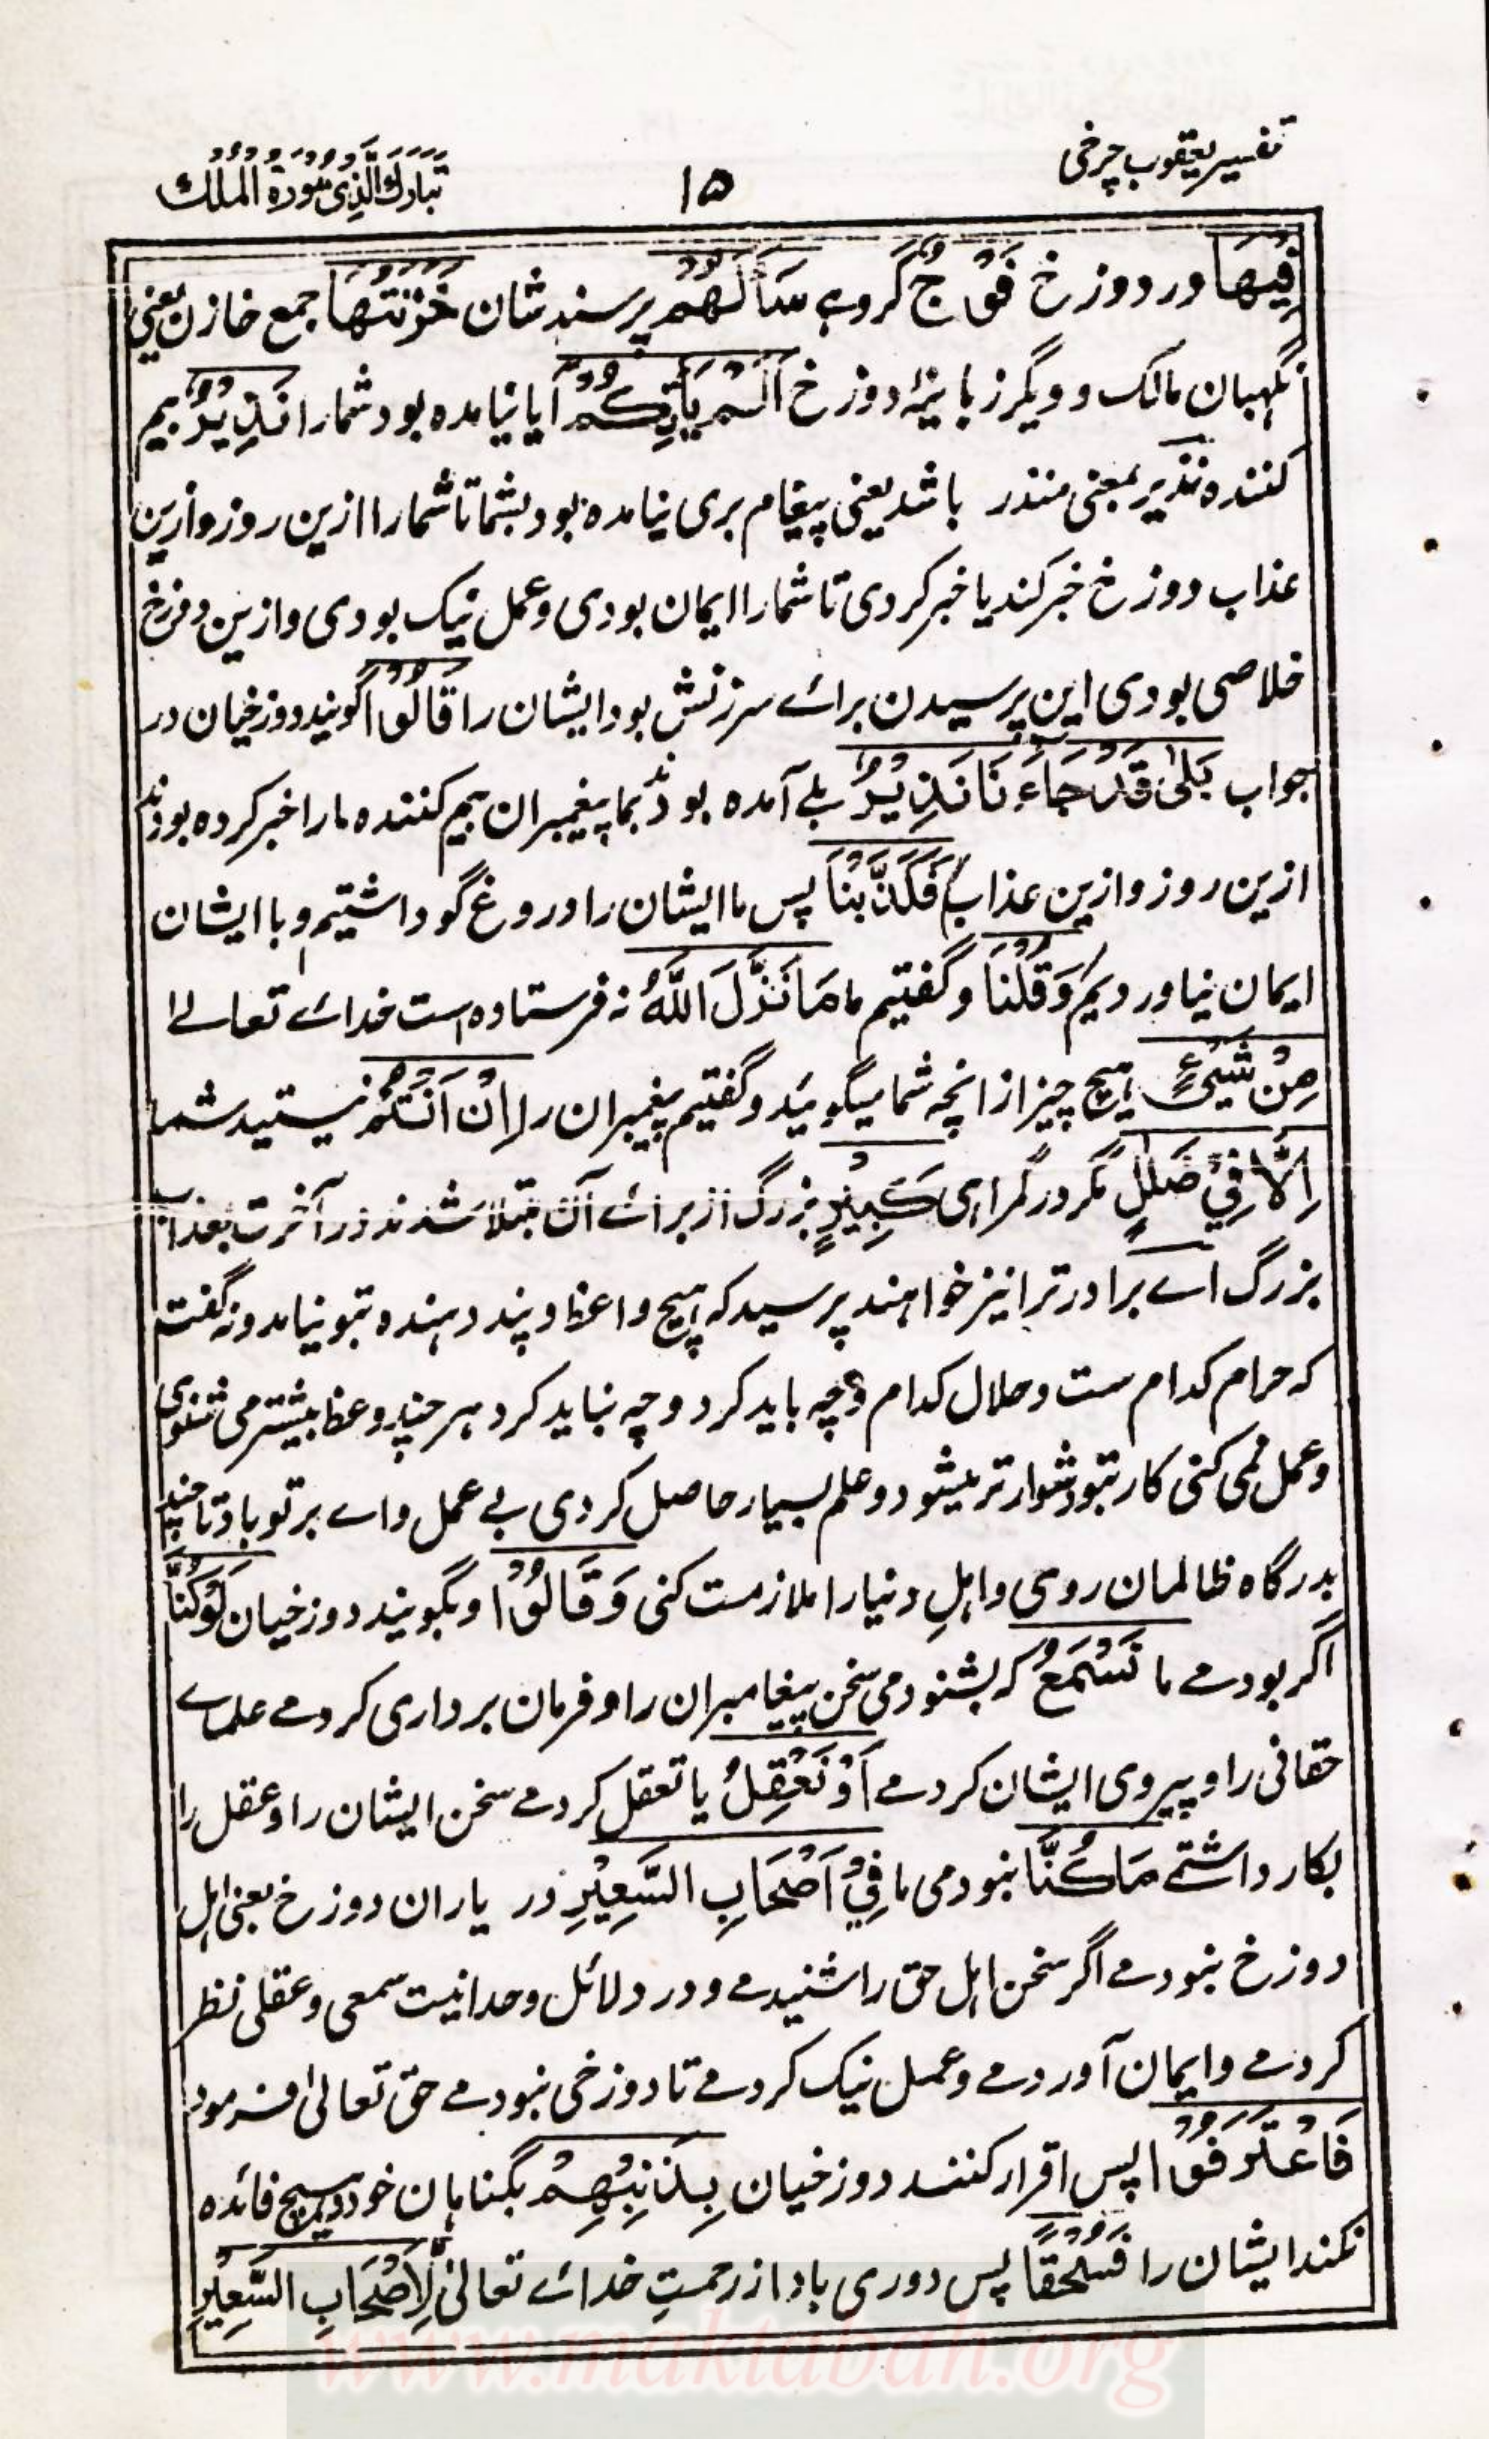 تفسیر یعقوب چرخی
۱۵
تَبَارَكَ الَّذِی سُورَۃُ الْمُلْكُ
فِیْهَا در دوزخ فَوْجٌ گروہے سَاَلَهُمْ پرسند شان خَزَنَتُهَا جمع خازن یعنی
نگہبان مالک و دیگر زبانیۂ دوزخ اَلَمْ یَاْتِكُمْ آیا نیامدہ بود شمارا نَذِیْرٌ بیم
کنندہ نذیر بمعنی منذر باشد یعنی پیغام بری نیامدہ بود بشما تا شمارا ازین روز وازین
عذاب دوزخ خبر کند یا خبر کردی تا شمارا ایمان بودی وعمل نیک بودی وازین دوزخ
خلاصی بودی این پرسیدن برائے سرزنش بود ایشان را قَالُوْا گویند دوزخیان در
جواب بَلٰی قَدْ جَاءَنَا نَذِیْرٌ بلے آمدہ بودند بما پیغمبران بیم کنندہ مارا خبر کردہ بودند
ازین روز وازین عذاب فَكَذَّبْنَا پس ما ایشان را دروغ گو داشتیم و با ایشان
ایمان نیاوردیم وَقُلْنَا و گفتیم ما مَا نَزَّلَ اللّٰهُ نہ فرستادہ است خدائے تعالے
مِنْ شَیْءٍ ہیچ چیز از انچہ شما میگوئید و گفتیم پیغمبران را اِنْ اَنْتُمْ نیستید شما
اِلَّا فِیْ ضَلٰلٍ مگر در گمراہی كَبِیْرٍ بزرگ از برائے آن مبتلا شدند در آخرت بعذاب
بزرگ اے برادر ترا نیز خواہند پرسید کہ ہیچ واعظ و پند دہندہ بتو نیامد و نہ گفت
کہ حرام کدام ست و حلال کدام و چہ باید کرد و چہ نباید کرد ہر چند وعظ بیشتر می شنوی
وعمل نمی کنی کار بتو دشوار تر میشود و علم بسیار حاصل کردی بے عمل واے بر تو باد تا چند
بدرگاہ ظالمان روی و اہلِ دنیا را ملازمت کنی وَقَالُوْا و بگویند دوزخیان لَوْ كُنَّا
اگر بودمے ما نَسْمَعُ کہ بشنودمی سخن پیغامبران را و فرمان برداری کردمے علماے
حقانی را و پیروی ایشان کردمے اَوْ نَعْقِلُ یا تعقل کردمے سخن ایشان را و عقل را
بکار داشتے مَا كُنَّا نبودمی ما فِیْ اَصْحَابِ السَّعِیْرِ در یاران دوزخ یعنی اہل
دوزخ نبودمے اگر سخن اہل حق را شنیدمے و در دلائل وحدانیت سمعی و عقلی نظر
کردمے و ایمان آوردمے و عمل نیک کردمے تا دوزخی نبودمے حق تعالیٰ فرمود
فَاعْتَرَفُوْا پس اقرار کنند دوزخیان بِذَنْبِهِمْ بگناہان خود و ہیچ فائدہ
نکند ایشان را فَسُحْقًا پس دوری باد از رحمتِ خدائے تعالیٰ لِّاَصْحَابِ السَّعِیْرِ
www.maktabah.org